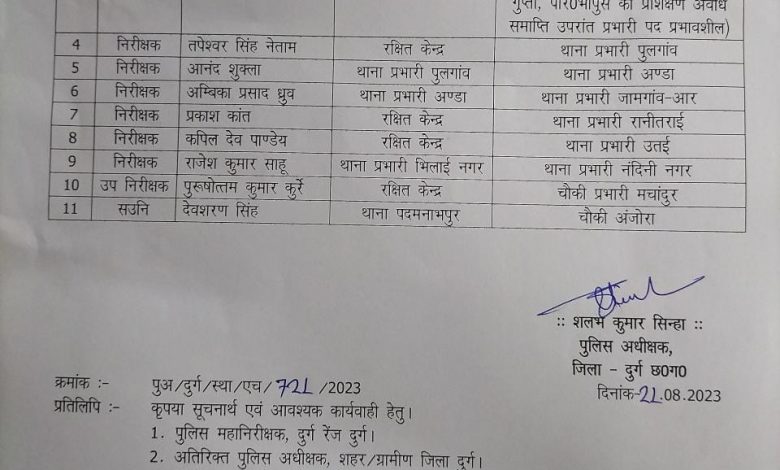 गुप्ता, परि०भापुसे की प्रशिक्षण अवधि
समाप्ति उपरांत प्रभारी पद प्रभावशील)
4 निरीक्षक तपेश्वर सिंह नेताम रक्षित केन्द्र थाना प्रभारी पुलगांव
5 निरीक्षक आनंद शुक्ला थाना प्रभारी पुलगांव थाना प्रभारी अण्डा
6 निरीक्षक अम्बिका प्रसाद ध्रुव थाना प्रभारी अण्डा थाना प्रभारी जामगांव-आर
7 निरीक्षक प्रकाश कांत रक्षित केन्द्र थाना प्रभारी रानीतराई
8 निरीक्षक कपिल देव पाण्डेय रक्षित केन्द्र थाना प्रभारी उतई
9 निरीक्षक राजेश कुमार साहू थाना प्रभारी भिलाई नगर थाना प्रभारी नंदिनी नगर
10 उप निरीक्षक पुरूषोत्तम कुमार कुर्रे रक्षित केन्द्र चौकी प्रभारी मचांदुर
11 सउनि देवशरण सिंह थाना पदमनाभपुर चौकी अंजोरा
:: शलभ कुमार सिन्हा ::
पुलिस अधीक्षक,
जिला - दुर्ग छ०ग०
दिनांक-21.08.2023
क्रमांक :- पुअ/दुर्ग/स्था/एच/ 721 /2023
प्रतिलिपि :- कृपया सूचनार्थ एवं आवश्यक कार्यवाही हेतु।
1. पुलिस महानिरीक्षक, दुर्ग रेंज दुर्ग।
2. अतिरिक्त पुलिस अधीक्षक, शहर/ग्रामीण जिला दुर्ग।